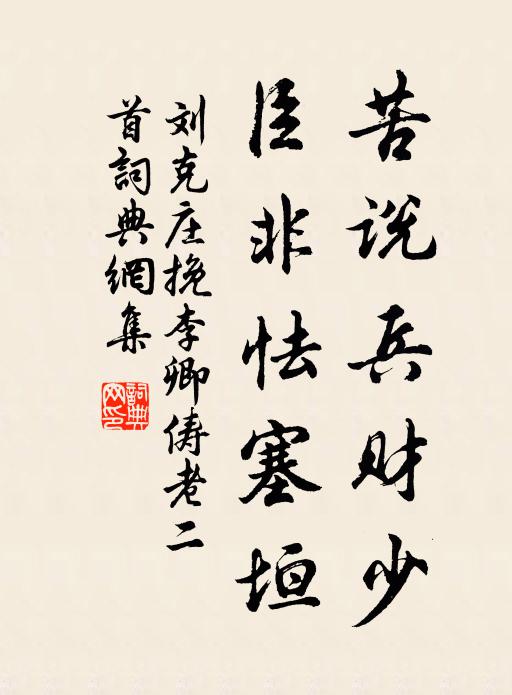 苦说兵财少
臣非怯塞垣
刘克庄挽李卿俦老二
首詞典網集
詞典
网印